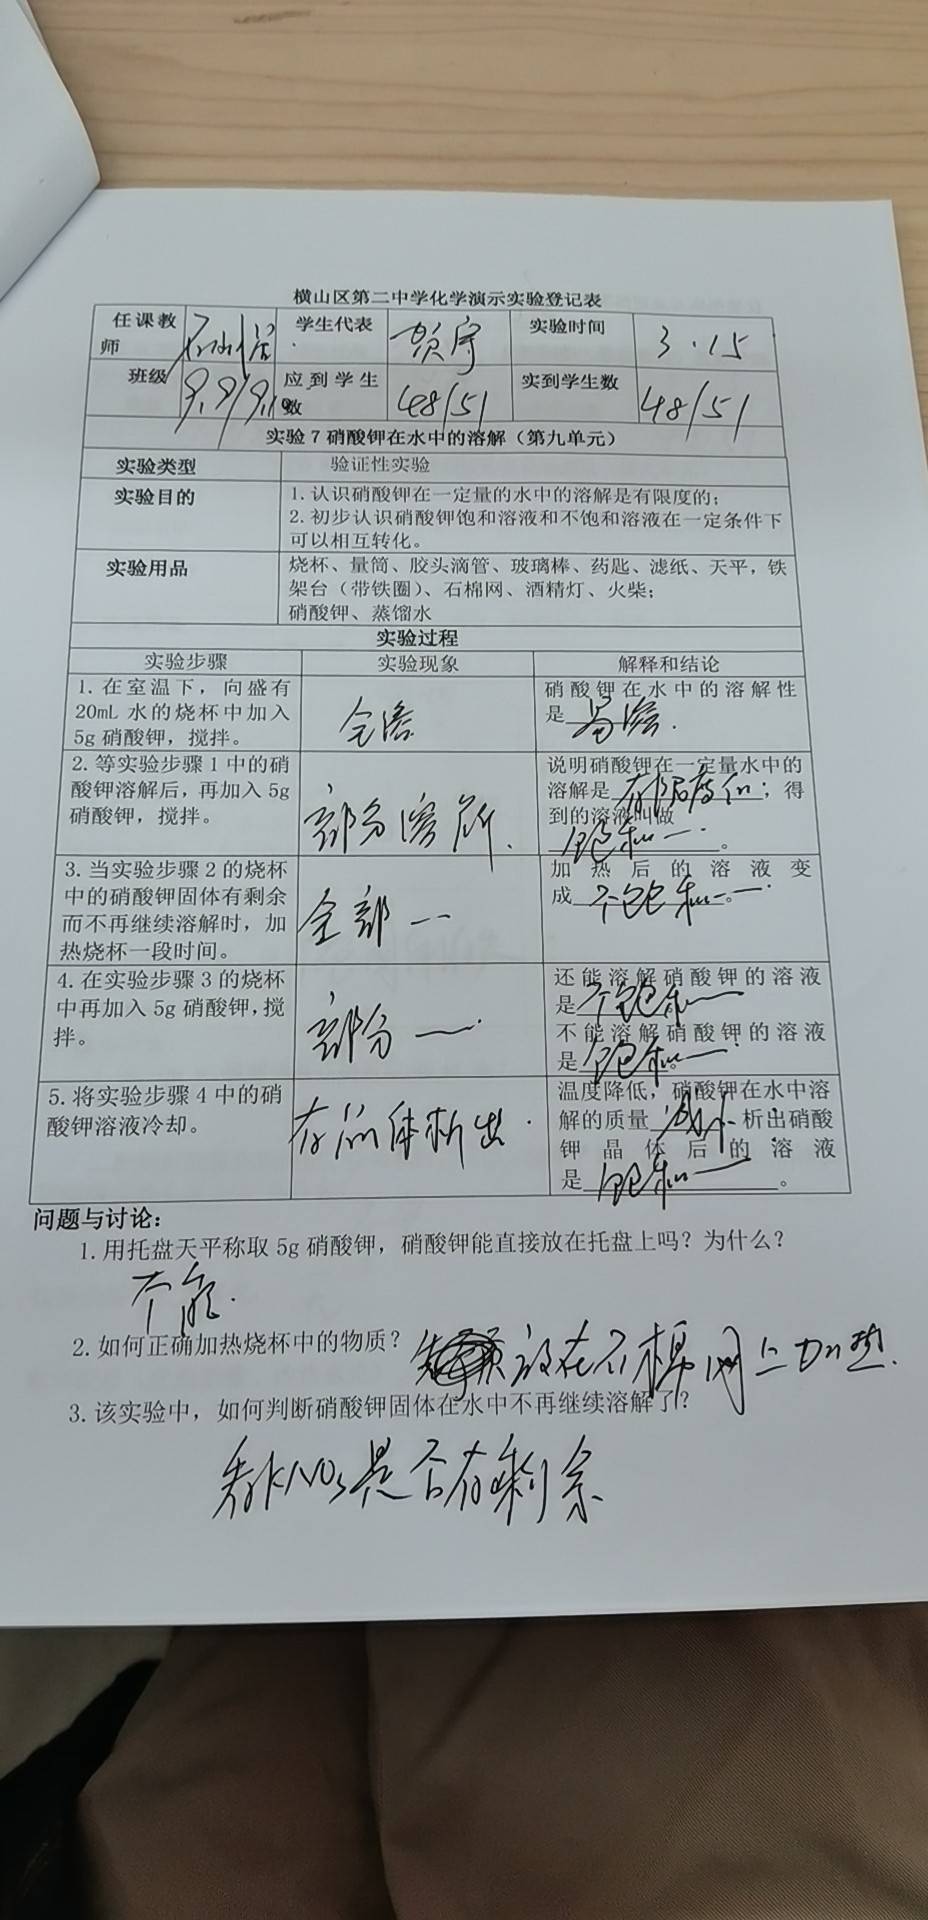 横山区第二中学化学演示实验登记表
任课教师 学生代表 贺宇 实验时间 3.15
班级 9.9/9.10 应到学生数 48/51 实到学生数 48/51
实验7 硝酸钾在水中的溶解（第九单元）
实验类型 验证性实验
实验目的 1.认识硝酸钾在一定量的水中的溶解是有限度的；
2.初步认识硝酸钾饱和溶液和不饱和溶液在一定条件下
可以相互转化。
实验用品 烧杯、量筒、胶头滴管、玻璃棒、药匙、滤纸、天平，铁
架台（带铁圈）、石棉网、酒精灯、火柴；
硝酸钾、蒸馏水
实验过程
实验步骤 实验现象 解释和结论
1.在室温下，向盛有
20mL 水的烧杯中加入
5g 硝酸钾，搅拌。
全溶
硝酸钾在水中的溶解性
是易溶.
2.等实验步骤1中的硝
酸钾溶解后，再加入5g
硝酸钾，搅拌。
部分溶解.
说明硝酸钾在一定量水中的
溶解是有限度的；得
到的溶液叫做
饱和一.。
3.当实验步骤2的烧杯
中的硝酸钾固体有剩余
而不再继续溶解时，加
热烧杯一段时间。
全部一
加热后的溶液变
成不饱和一。
4.在实验步骤3的烧杯
中再加入5g硝酸钾,搅
拌。
部分一.
还能溶解硝酸钾的溶液
是不饱和一
不能溶解硝酸钾的溶液
是饱和一。
5.将实验步骤4中的硝
酸钾溶液冷却。
有晶体析出.
温度降低，硝酸钾在水中溶
解的质量减小.析出硝酸
钾晶体后的溶液
是饱和一。
问题与讨论：
1.用托盘天平称取5g硝酸钾，硝酸钾能直接放在托盘上吗？为什么？
不能.
2.如何正确加热烧杯中的物质？ 放在石棉网上加热.
3.该实验中，如何判断硝酸钾固体在水中不再继续溶解了？
看KNO3是否有剩余